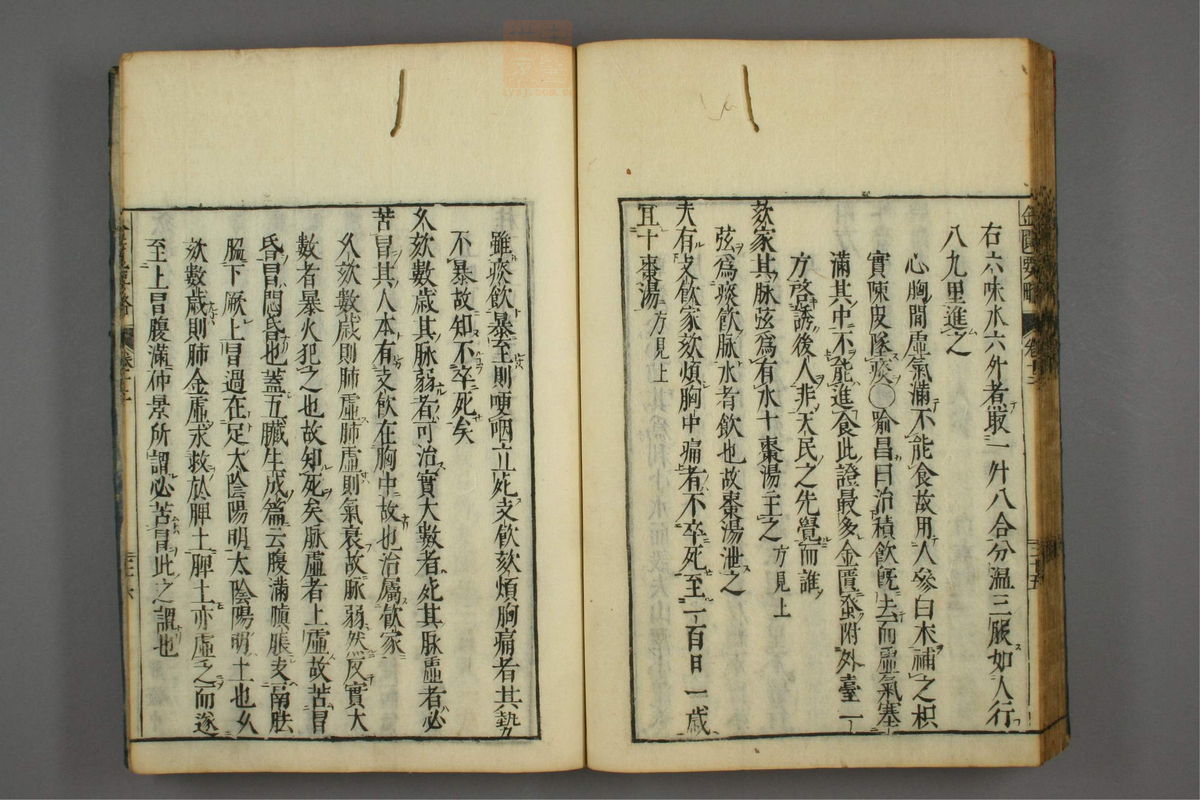 右六味水六升煮取一升八合分溫三服如人行
八九里進之
心胸間虛氣滿不能食故用人參白朮補之枳
實陳皮墜痰○喻昌曰治積飲既去而虛氣塞
滿其中不能進食此證最多金匱發附外臺一
方啓誘後人非天民之先覺而誰
欬家其脉弦爲有水十棗湯主之方見上
弦爲痰飲脉水者飲也故棗湯泄之
夫有支飲家欬煩胸中痛者不卒死至一百日一歲
宜十棗湯方見上
雖痰飲暴至則哽咽立死支飲欬煩胸痛者其勢
不暴故知不卒死矣
久欬數歲其脉弱者可治實大數者死其脉虛者必
苦冒其人本有支飲在胸中故也治屬飲家
久欬數歲則肺虛肺虛則氣衰故脉弱然反實大
數者暴火犯之也故知死矣脉虛者上虛故苦冒
昏冒悶昏也蓋五臟生成篇云腹滿䐜脹支鬲胠
脇下厥上冒過在足太陰陽明太陰陽明土也久
欬數歲則肺金虛求救於脾土脾土亦虛之而遂
至上冒腹滿仲景所謂必苦冒此之謂也
金匱要略
卷